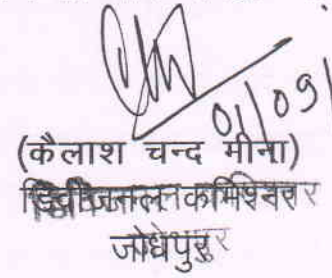 01/09/
(कैलाश चन्द मीना)
डिवीजनल कमिश्नर
जोधपुर